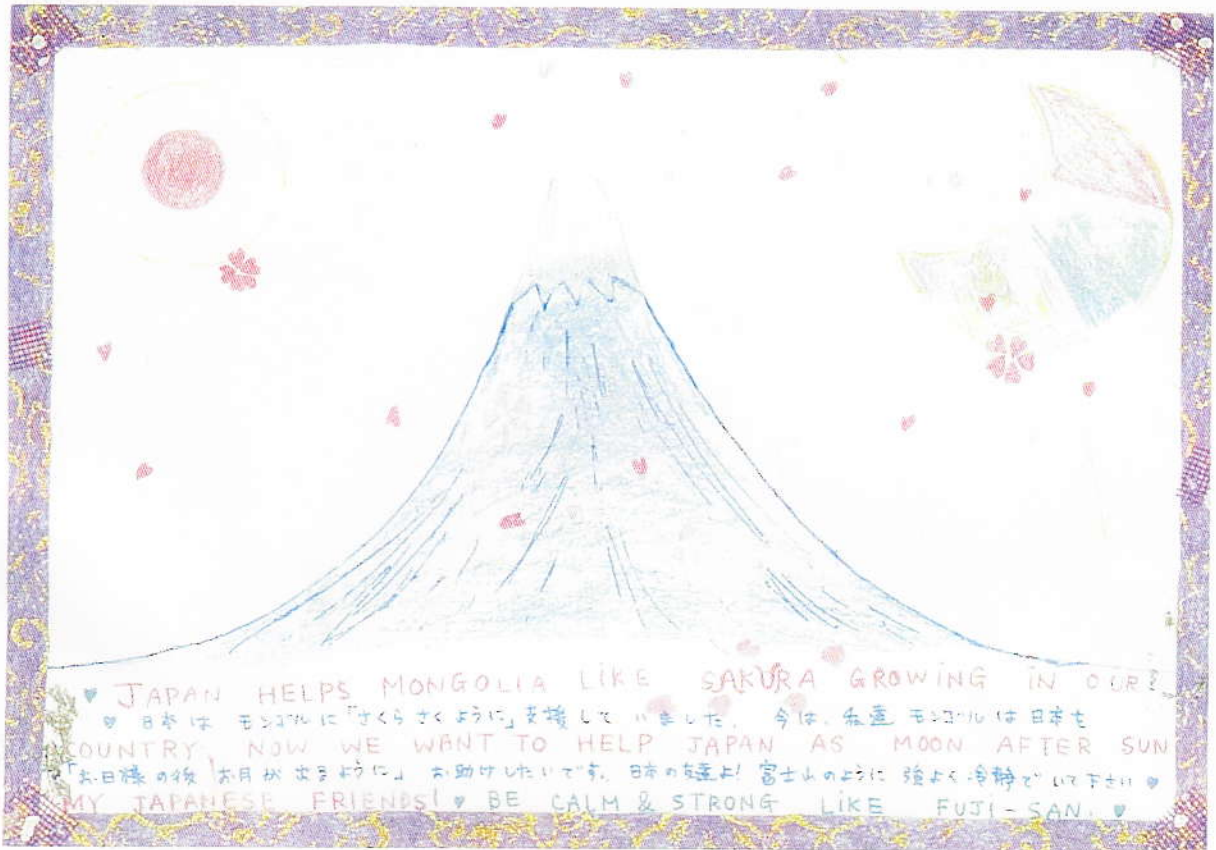 ♥ JAPAN HELPS MONGOLIA LIKE SAKURA GROWING IN OUR
♥ 日本は モンゴルに「さくら さく ように」支援して いました. 今は、私達 モンゴルは 日本を
COUNTRY, NOW WE WANT TO HELP JAPAN AS MOON AFTER SUN
「お日様の後 お月が出るように」 お助けしたいです. 日本の友達よ! 富士山のように 強よく 冷静で いて下さい ♥
MY JAPANESE FRIENDS! ♥ BE CALM & STRONG LIKE FUJI-SAN. ♥